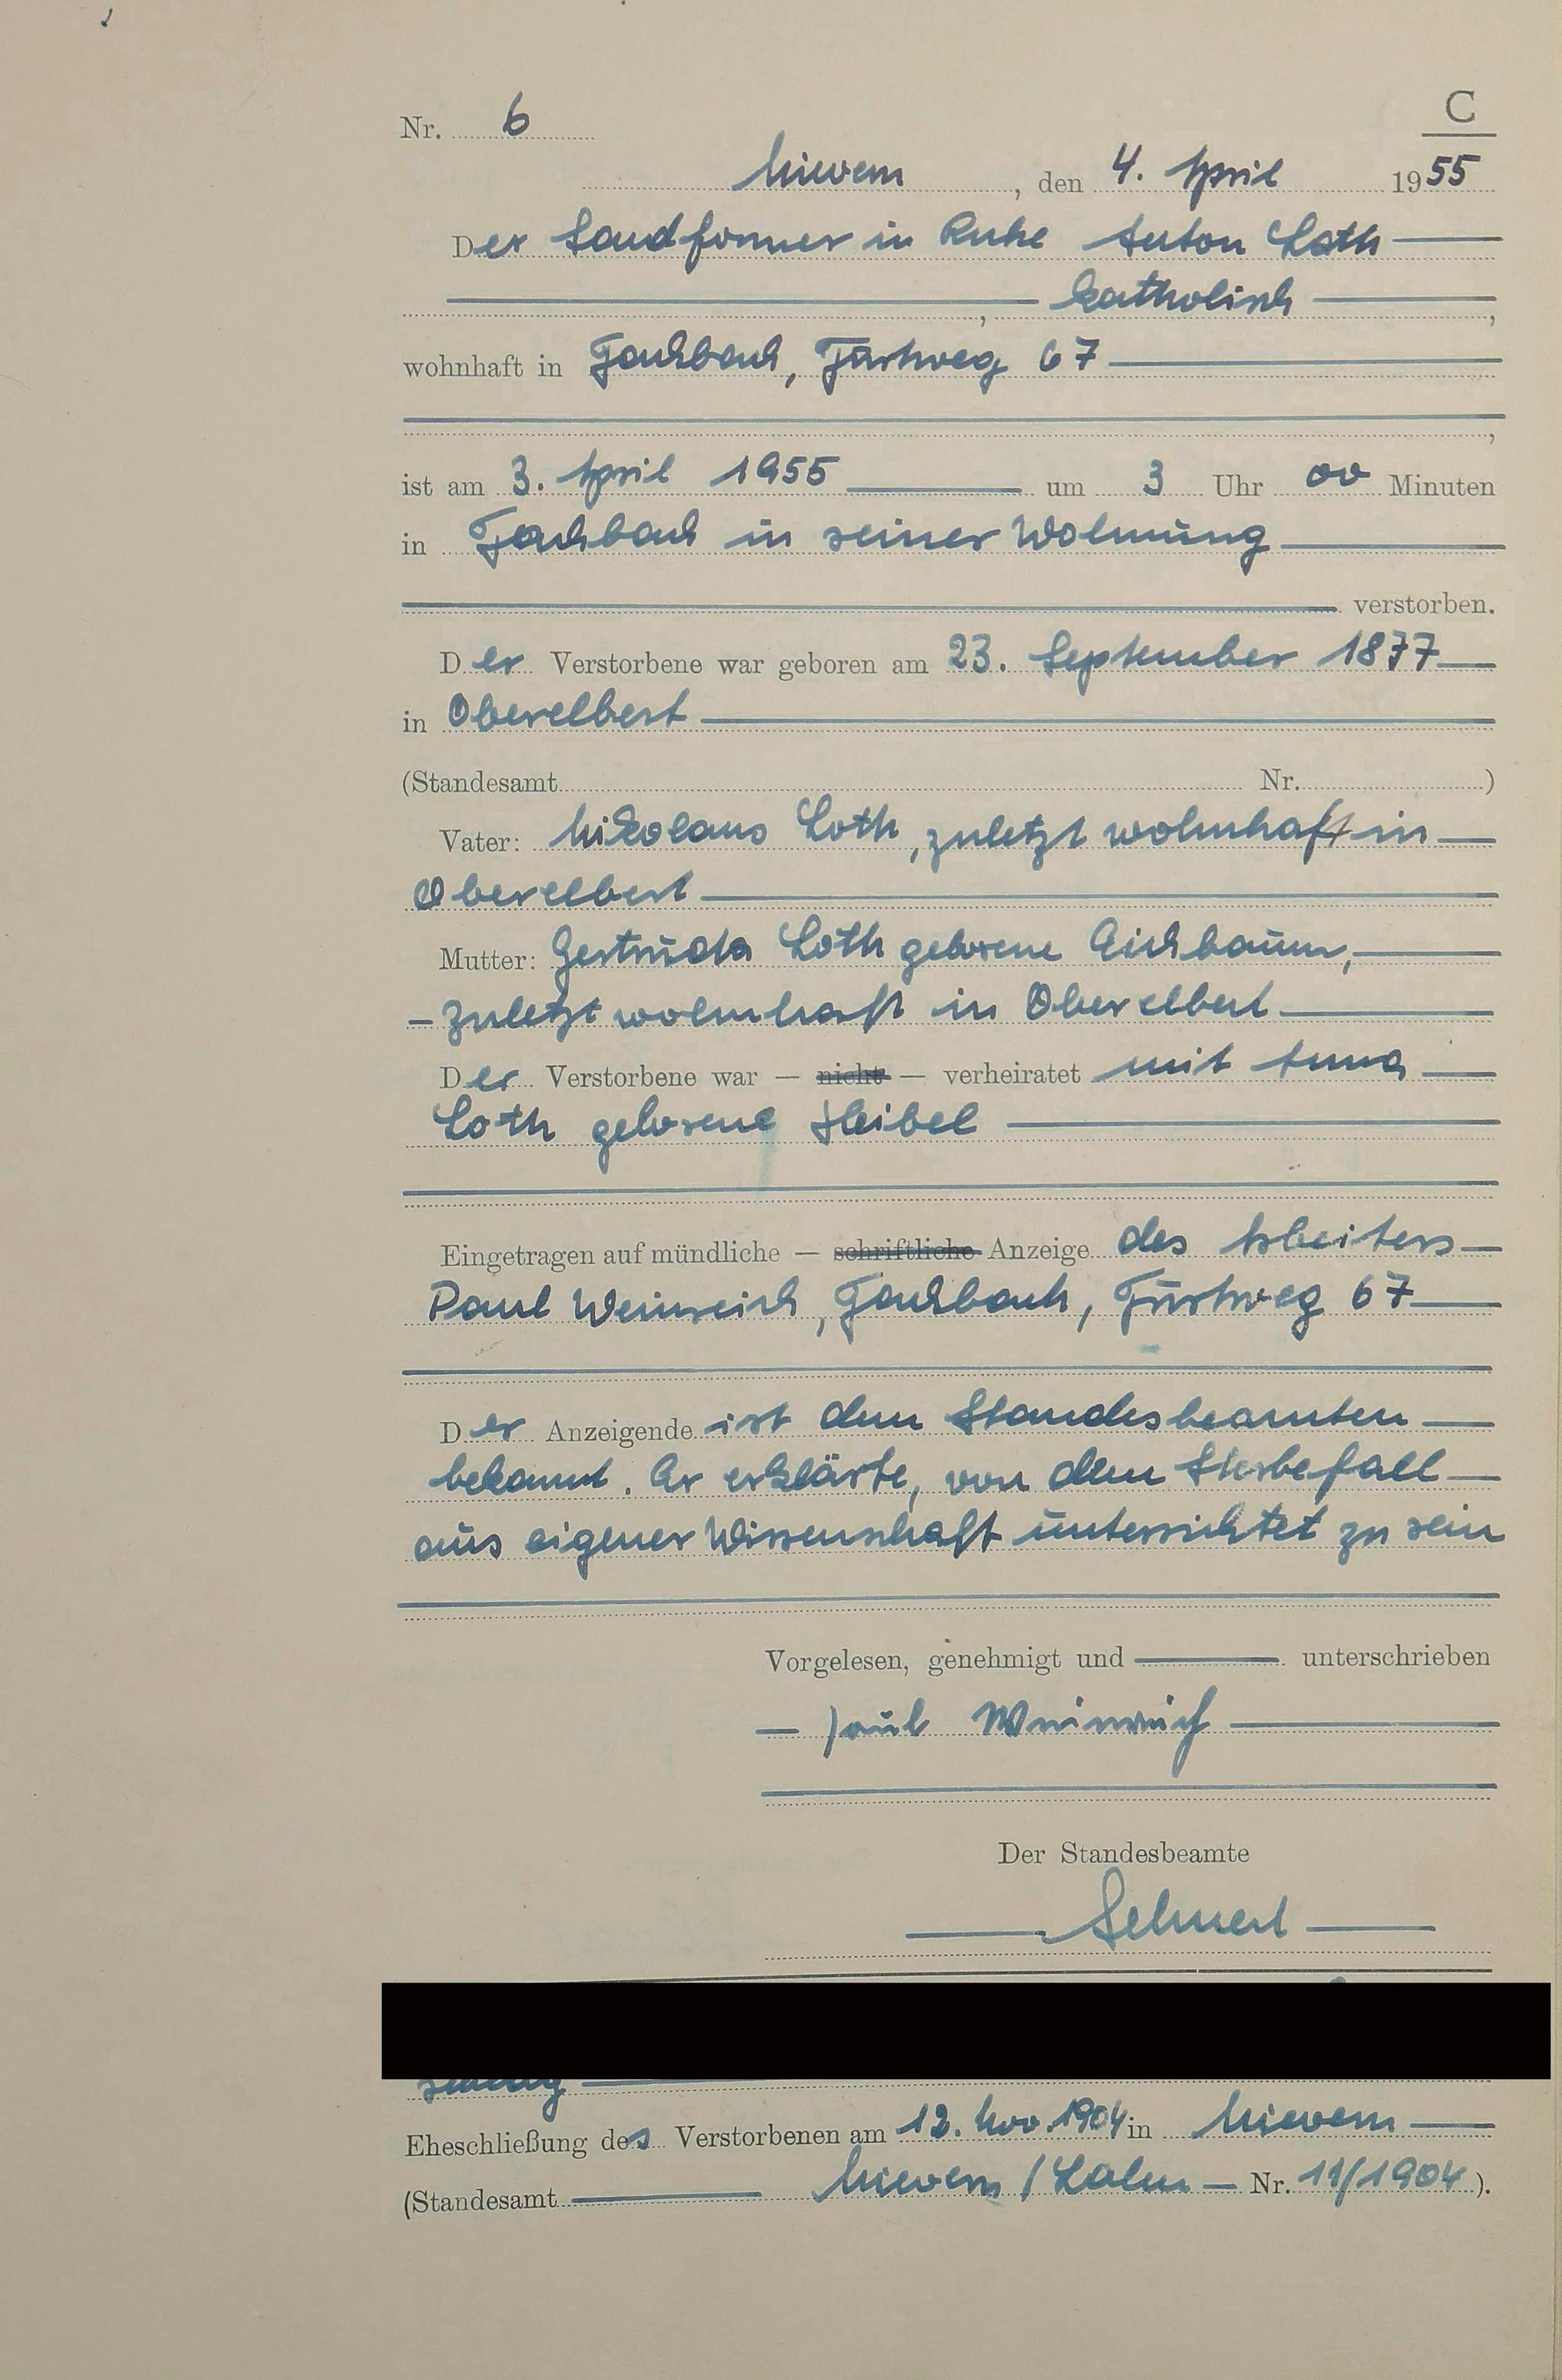 C
Nr. 6
Nievern, den 4. April 1955
Der Sandformer in Ruhe Anton Loth
katholisch,
wohnhaft in Fachbach, Fürstweg 67
ist am 3. April 1955 um 3 Uhr 00 Minuten
in Fachbach in seiner Wohnung
verstorben.
Der Verstorbene war geboren am 23. September 1877
in Oberelbert
(Standesamt Nr. )
Vater: Nikolaus Loth, zuletzt wohnhaft in
Oberelbert
Mutter: Gertruda Loth geborene Eichbaum,
zuletzt wohnhaft in Oberelbert
Der Verstorbene war — nicht — verheiratet mit Anna
Loth geborene Heibel
Eingetragen auf mündliche — schriftliche Anzeige des Arbeiters
Paul Weinreich, Fachbach, Fürstweg 67
Der Anzeigende ist dem Standesbeamten
bekannt. Er erklärte, von dem Sterbefall
aus eigener Wissenschaft unterrichtet zu sein
Vorgelesen, genehmigt und unterschrieben
Paul Weinreich
Der Standesbeamte
Eheschließung des Verstorbenen am 12. Nov. 1904 in Nievern
(Standesamt Nievern / Lahn — Nr. 11/1904).